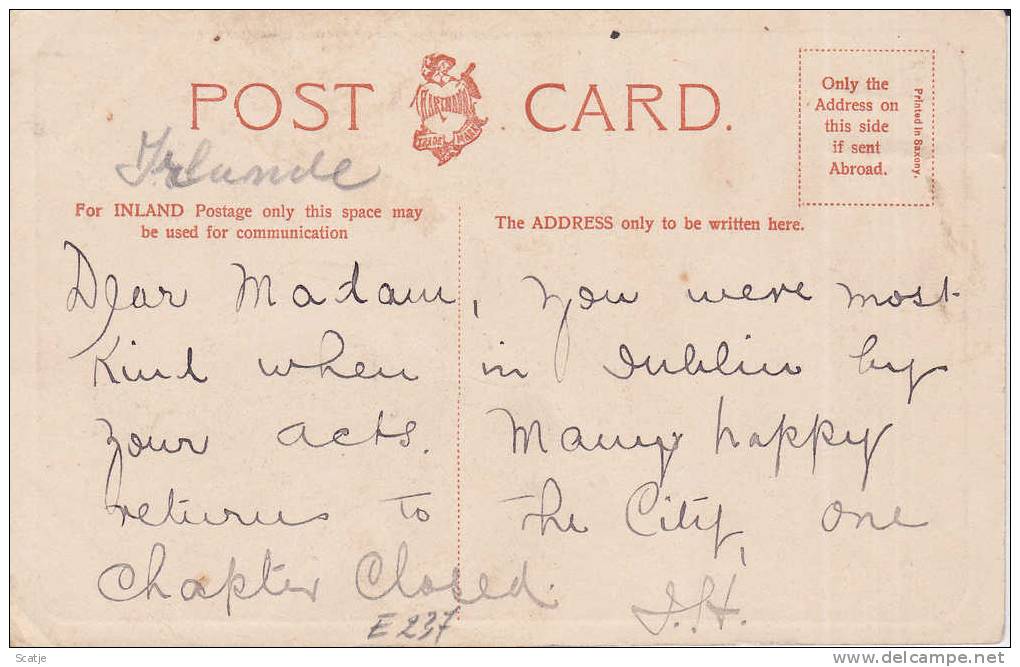 POST CARD.
HARTMANN
TRADE MARK
Only the
Address on
this side
if sent
Abroad.
Printed in Saxony.
Irlande
For INLAND Postage only this space may
be used for communication
The ADDRESS only to be written here.
Dear Madam, you were most
kind when in Dublin by
your acts. Many happy
returns to the City, one
Chapter Closed.
J.H.
E 237
Scatje
www.delcampe.net